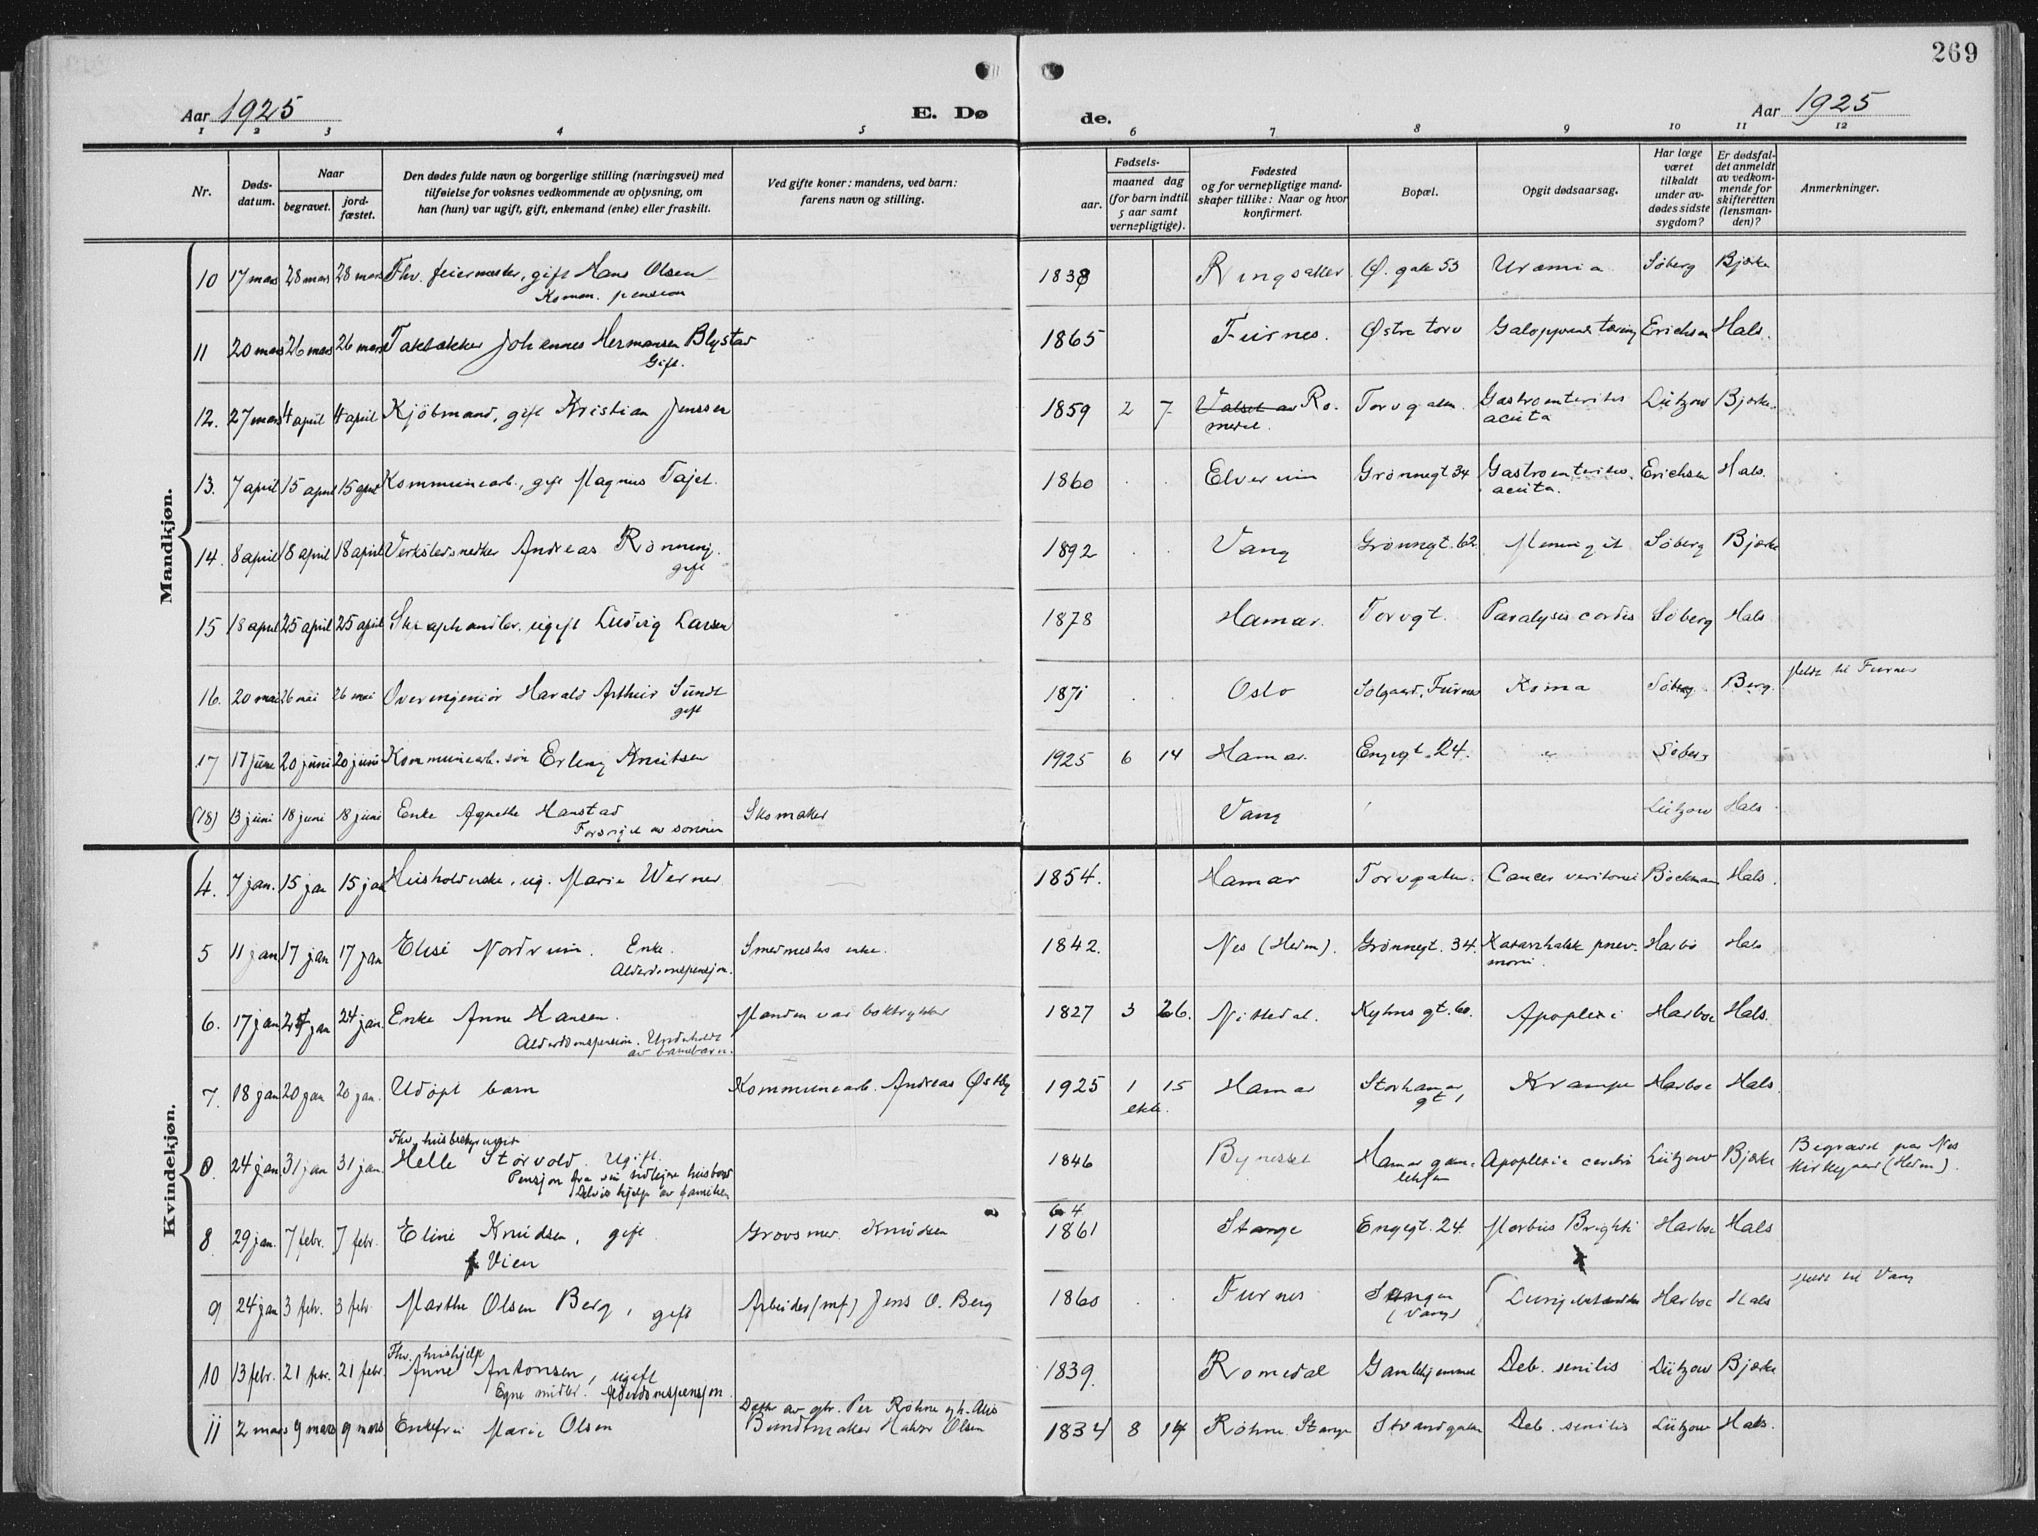 269
Aar 1925
E. Dø
de.
Aar 1925
1 2 3 4 5 6 7 8 9 10 11 12
Nr.
Døds-
datum.
Naar
begravet.
jord-
fæstet.
Den dødes fulde navn og borgerlige stilling (næringsvei) med
tilføielse for voksnes vedkommende av oplysning, om
han (hun) var ugift, gift, enkemand (enke) eller fraskilt.
Ved gifte koner: mandens, ved barn:
farens navn og stilling.
Fødsels-
aar.
maaned dag
(for barn indtil
5 aar samt
vernepligtige).
Fødested
og for vernepligtige mand-
skaper tillike: Naar og hvor
konfirmert.
Bopæl.
Opgit dødsaarsag.
Har læge
været
tilkaldt
under av-
dødes sidste
sygdom?
Er dødsfal-
det anmeldt
av vedkom-
mende for
skifteretten
(lensman-
den)?
Anmerkninger.
Mandkjøn.
10 17 mars 28 mars 28 mars Fhv. feiermester, gift Hans Olsen 1838 Ringsaker Ø. gate 53 Uræmia Søberg Bjerke
Komm. pension
11 20 mars 26 mars 26 mars Taktækker Johannes Hermansen Blystad 1865 Furnes. Østre torv Galopperende tæring Erichsen Hals.
Gift.
12. 27 mars 4 april 4 april Kjöbmand, gift Kristian Jenssen 1859 2 7 Valset av Ro- Torvgaten. Gastroenterites Lützow Bjerke.
medal. acuta
13. 7 april 15 april 15 april Kommunearb., gift Magnus Tajet. 1860 Elverum Grønnegt 34 Gastroenterites. Erichsen Hals.
acuta.
14. 8 april 18 april 18 april Verkstedsnedker Andreas Rönning. 1892 Vang Grønnegt. 62. Meningit Søberg Bjerke
gift
15 18 april 25 april 25 april Skraphandler, ugift Ludvig Larsen 1878 Hamar. Torvgt. Paralysis cordis Søberg Hals
16. 20 mai 26 mai 26 mai Overingeniør Harald Arthur Sundt 1871 Oslo Solgaard, Furnes Koma Søberg. Berg. Meldt til Furnes
gift
17 17 june 20 juni 20 juni Kommunearb. søn Erling Knutsen 1925 6 14 Hamar. Engegt. 24. " Søberg
(18) 13 juni 18 juni 18 juni Enke Agnethe Hanstad Skomaker Vang Lützow Hals
Forsørget av sønnen
Kvindekjøn.
4. 7 jan. 15 jan 15 jan Husholderske, ug. Marie Werner 1854. Hamar Torvgaten. Cancer Bøckman Hals.
5 11 jan 17 jan 17 jan Elise Nordrum. Enke. Smedmesters enke. 1842. Nes (Hedm). Grønnegt. 34. Katarrhalsk pnev- Harbo Hals
Alderdomspensjon. moni.
6. 17 jan 24 jan 24 jan. Enke Anne Hansen. Manden var boktrykker 1827 3 26. Nittedal. Kyhns gt. 60. Apoplexi Harboe Hals.
Alderdomspension. Underholdt
av barnebarn.
7. 18 jan 20 jan 20 jan. Udöpt barn Kommunearb. Andreas Østby 1925 1 15 Hamar Storhamar Krampe Harboe Hals.
ekte. gt 1
Fhv. husbestyrerinde
8. 24 jan 31 jan 31 jan. Helle Størvold. Ugift. 1846 Bynesset Hamar gam- Apoplexia cerebri Lützow Bjerke Begravet paa Nes
Pensjon fra sin tidligere husbond lehjem kirkegaard (Hedm).
Delvis hjelp av familien
64
8. 29 jan. 7 febr. 7 febr. Eline Knudsen, gift Grovsmed Knudsen 1861 Stange Engegt. 24. Morbus Brighti Harboe Hals
f Vien
9 24 jan 3 febr. 3 febr. Marthe Olsen Berg, gift Arbeider (mf) Jens O. Berg 1860 Furnes (Vang) Lungebetændelse Harboe Hals Meldt til Vang
Fhv. hushjelp
10 13 febr. 21 febr. 21 febr. Anne Antonsen, ugift 1839. Romedal Gamlehjemmet Deb. senilis Lützow Bjerke
Egne midler. Alderdomspensjon.
Datter av gbr. Per Röhne
11 2 mars 9 mars 9 mars Enkefru Marie Olsen Bundtmaker Halvor Olsen 1834 8 14 Röhne. Stange Strandgaten Deb. senilis Lützow Hals.